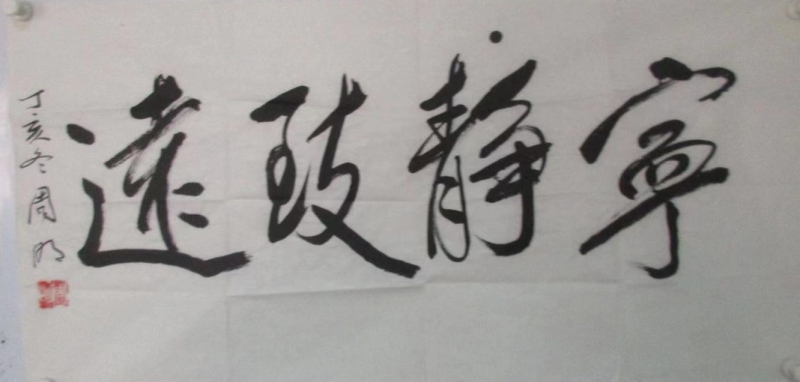 寧靜致遠
丁亥冬周明